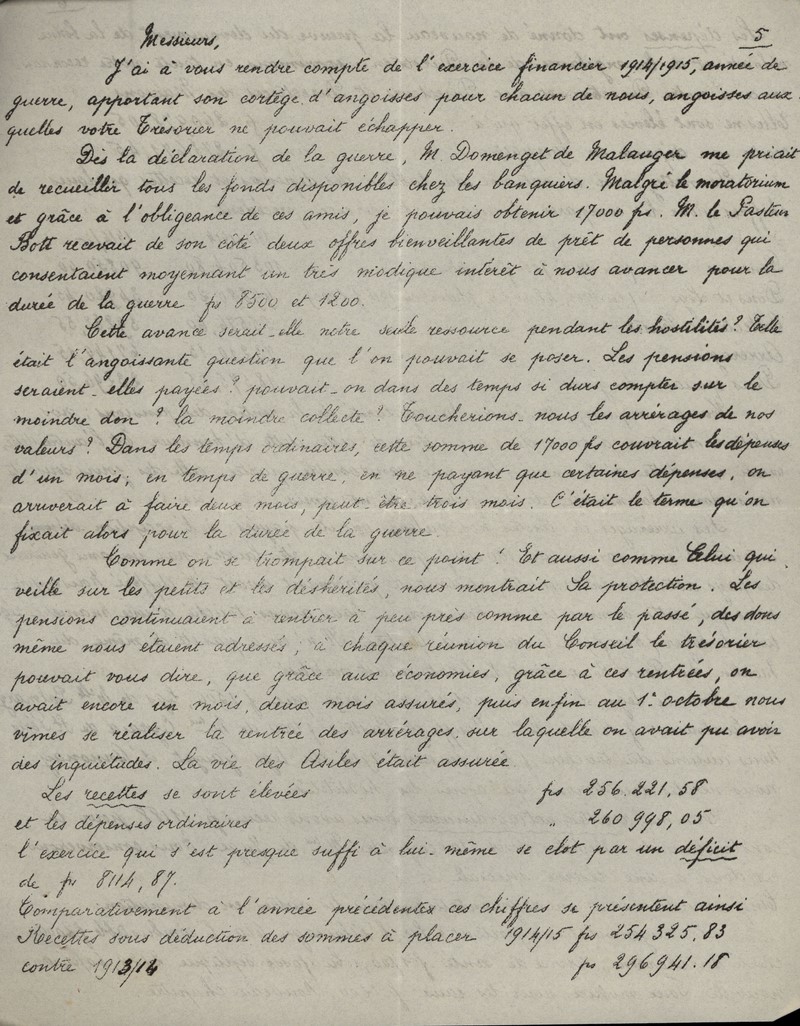 5
Messieurs,
J'ai à vous rendre compte de l'exercice financier 1914/1915, année de
guerre, apportant son cortège d'angoisses pour chacun de nous, angoisses aux-
quelles votre Trésorier ne pouvait échapper.
Dès la déclaration de la guerre, M. Domenget de Malauger me priait
de recueillir tous les fonds disponibles chez les banquiers. Malgré le moratorium
et grâce à l'obligeance de ces amis, je pouvais obtenir 17000 fs. M. le Pasteur
Bott recevait de son côté deux offres bienveillantes de prêt de personnes qui
consentaient moyennant un très modique intérêt à nous avancer pour la
durée de la guerre fs 8500 et 1200.
Cette avance serait-elle notre seule ressource pendant les hostilités? Telle
était l'angoissante question que l'on pouvait se poser. Les pensions
seraient-elles payées? pouvait-on dans des temps si durs compter sur le
moindre don? la moindre collecte? Toucherions-nous les arrérages de nos
valeurs? Dans les temps ordinaires, cette somme de 17000 fs couvrait les dépenses
d'un mois; en temps de guerre, en ne payant que certaines dépenses, on
arriverait à faire deux mois, peut-être trois mois. C'était le terme qu'on
fixait alors pour la durée de la guerre.
Comme on se trompait sur ce point! Et aussi comme Celui qui
veille sur les petits et les déshérités, nous montrait Sa protection. Les
pensions continuaient à rentrer à peu près comme par le passé, des dons
même nous étaient adressés; à chaque réunion du Conseil le trésorier
pouvait vous dire, que grâce aux économies, grâce à ces rentrées, on
avait encore un mois, deux mois assurés, puis enfin au 1.º octobre nous
vîmes se réaliser la rentrée des arrérages sur laquelle on avait pu avoir
des inquiétudes. La vie des Asiles était assurée
Les recettes se sont élevées fs 256.221,58
et les dépenses ordinaires " 260 998,05
l'exercice qui s'est presque suffi à lui-même se clot par un déficit
de fs 8114,87.
Comparativement à l'année précédente ces chiffres se présentent ainsi
Recettes sous déduction des sommes à placer 1914/15 fs 254325.83
contre 1913/14 fs 296941.18